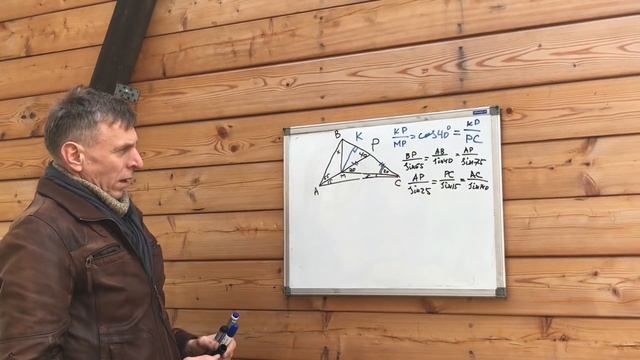 B K P
A M C
KP/MP = cos40° = KP/PC
BP/sin65 = AB/sin40 = AP/sin75
AP/sin25 = PC/sin15 = AC/sin140